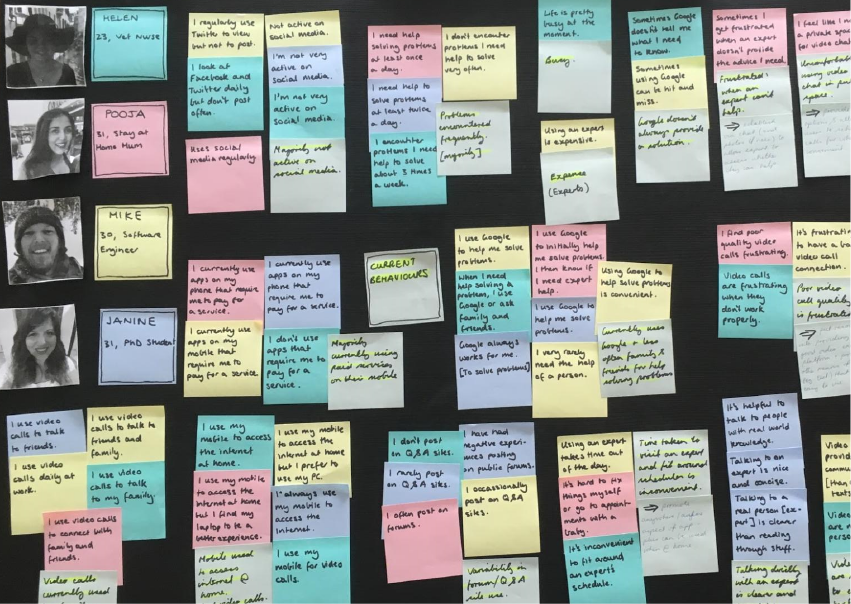 HELEN
23, Vet Nurse
POOJA
31, Stay at
Home Mum
MIKE
30, Software
Engineer
JANINE
31, PhD Student
I regularly use
Twitter to view
but not to post.
I look at
Facebook and
Twitter daily
but don't post
often.
Uses social
media regularly.
Not active on
social media.
I'm not very
active on
social media.
I'm not very
active on
social media.
Majority not
active on
social media.
I need help
solving problems
at least once
a day.
I need help to
solve problems
at least twice
a day.
I encounter
problems I need
help to solve
about 3 times
a week.
I don't encounter
problems I need
help to solve
very often.
Problems
encountered
frequently.
[majority]
Life is pretty
busy at the
moment.
Busy.
Using an expert
is expensive.
Expense
(Experts)
Sometimes Google
doesn't tell me
what I need
to know.
Sometimes
using Google
can be hit and
miss.
Google doesn't
always provide
a solution.
Sometimes I
get frustrated
when an expert
doesn't provide
the advice I need.
Frustrated
when an
expert can't
help.
I feel like I n
a private spac
for video chat
Uncomfortab
using video
chat in pu
space.
I currently use
apps on my
phone that require
me to pay for
a service.
I currently use
apps on my
mobile that
require me to
pay for a service
I currently use
apps on my
phone that
require me to
pay for a service.
I don't use
apps that
require me to
pay for a
service.
Majority
currently using
paid services
on their mobile
CURRENT
BEHAVIOURS
I use Google
to help me solve
problems.
When I need
help solving a
problem, I use
Google or ask
family and
friends.
Google always
works for me.
[To solve problems]
I use Google
to initially help
me solve problems.
I then know if
I need expert
help.
I use Google to
help me solve
problems.
I very rarely
need the help
of a person.
Using Google to
help solve problems
is convenient.
Currently uses
Google & less
often family &
friends for help
solving problems
I find poor
quality video
calls frustrating.
Video calls
are frustrating
when they
don't work
properly.
It's frustratin
to have a ba
video call
connection.
Poor video
call quality
is frustratin
I use video
calls to talk
to friends.
I use video
calls daily at
work.
I use video
calls to talk to
friends and
family.
I use video
calls to talk
to my family.
I use video calls
to connect with
family and
friends.
Video calls
currently used
I use my
mobile to access
the internet
at home.
I use my mobile
to access the
internet at home
but I find my
laptop to be a
better experience.
Mobile used
to access
internet @
home.
I use my mobile
to access the
internet at home
but I prefer to
use my PC.
I always use
my mobile to
access the
internet.
I use my
mobile for video
calls.
I don't post
on Q&A sites.
I rarely post
on Q&A sites.
I often post on
forums.
I have had
negative experi-
ences posting
on public forums.
I occassionally
post on Q&A
sites.
Variability in
forum/Q&A
site use.
Using an expert
takes time out
of the day.
It's hard to fix
things myself
or go to appoint
ments with a
baby.
It's inconvenient
to fit around
an expert's
schedule.
Time taken to
visit an expert
and fit around
schedules is
inconvenient.
It's helpful to
talk to people
with real world
knowledge.
Talking to an
expert is nice
and concise.
Talking to a
real person [ex-
pert] is clearer
than reading
through stuff.
Talking directly
with an expert
is clearer and
Video
provid
commu
[than
texts